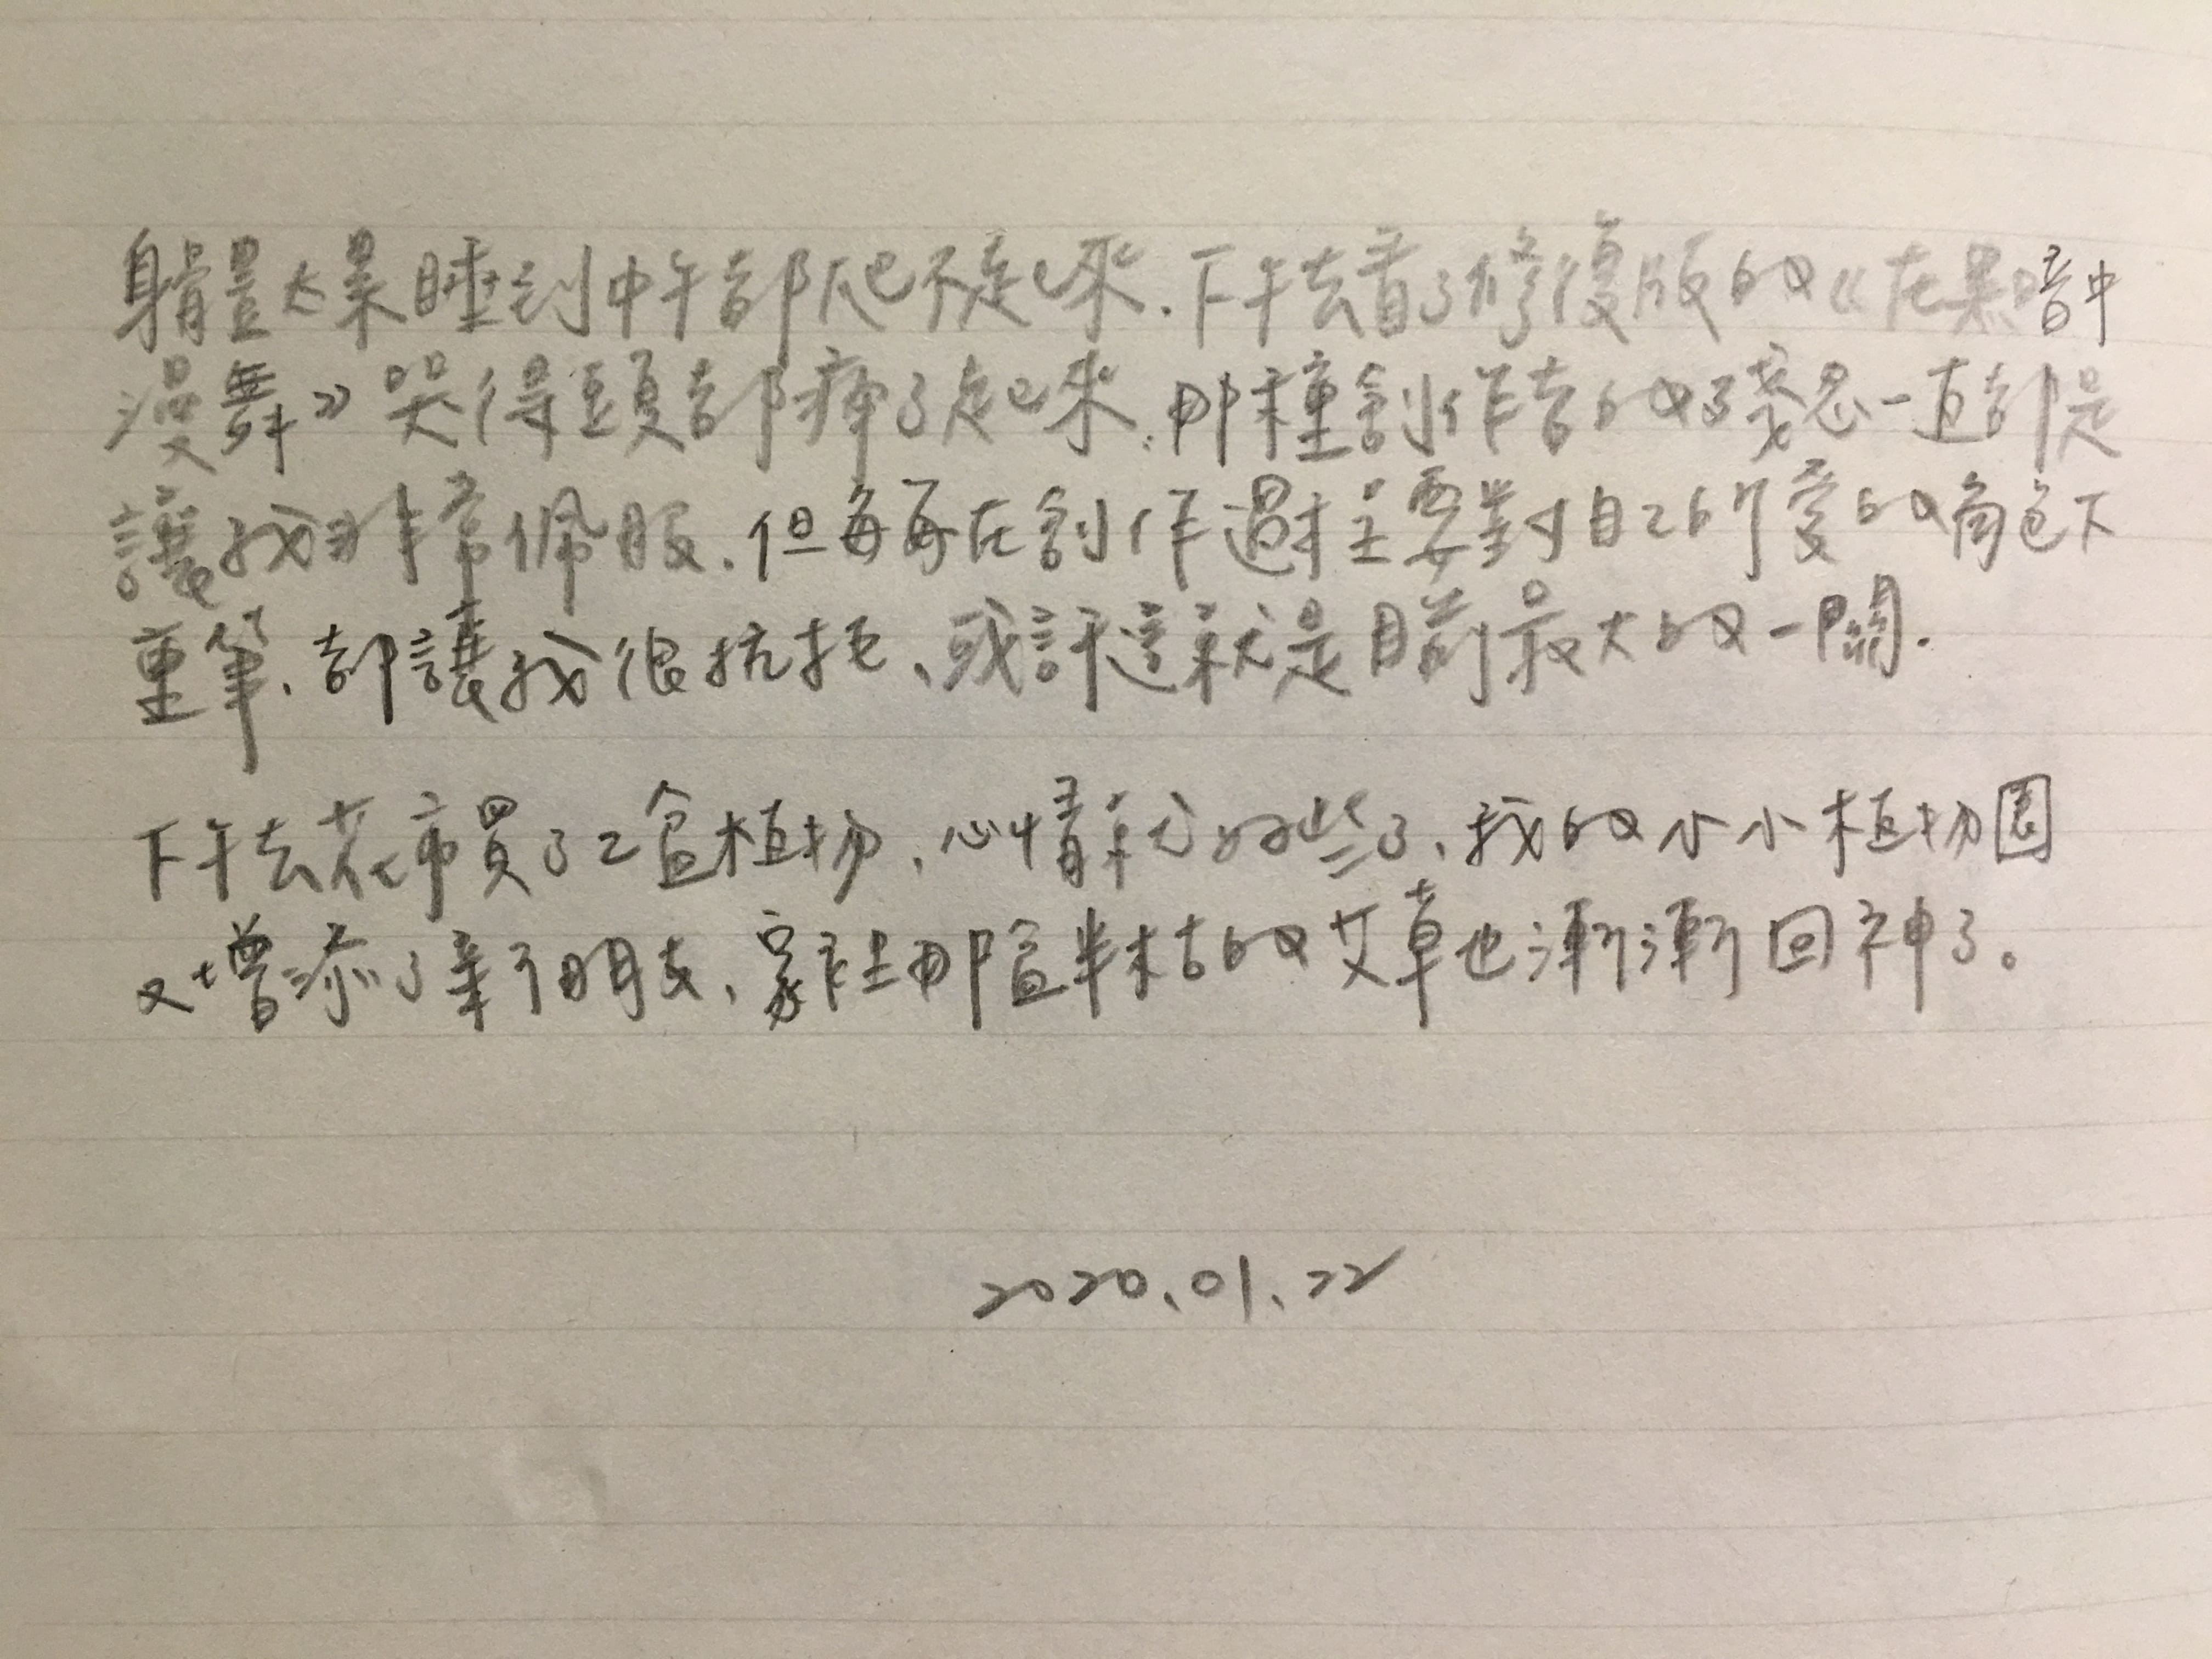 身體太累睡到中午都爬不起來.下午去看了修復版的《在黑暗中
漫舞》哭得頭都痛了起來.那種創作者的殘忍一直都是
讓我非常佩服.但每每在創作過程要對自己所愛的角色下
重筆、都讓我很抗拒、或許這就是目前最大的一關.
下午去花市買了2盆植物、心情就好些了、我的小小植物園
又增添了新朋友、家裡那盆半枯的艾草也漸漸回神了。
2020.01.22